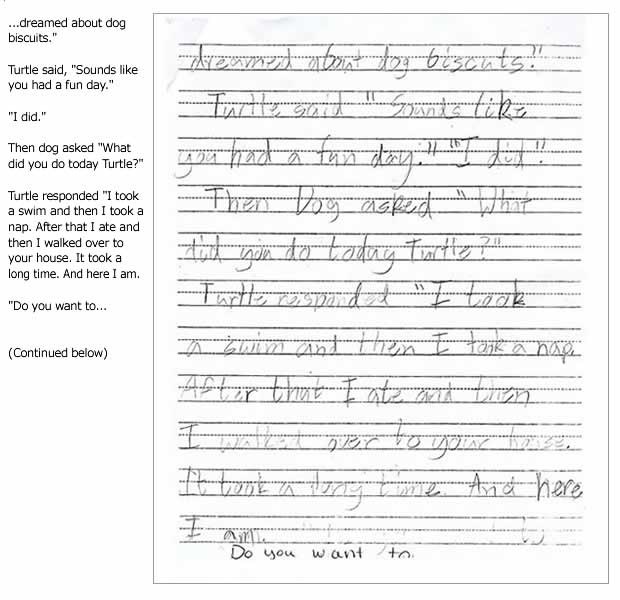 ...dreamed about dog
biscuits."
Turtle said, "Sounds like
you had a fun day."
"I did."
Then dog asked "What
did you do today Turtle?"
Turtle responded "I took
a swim and then I took a
nap. After that I ate and
then I walked over to
your house. It took a
long time. And here I am.
"Do you want to...
(Continued below)
dreamed about dog biscuits."
Turtle said "Sounds like
you had a fun day." "I did".
Then Dog asked "What
did you do today Turtle?"
Turtle responded "I took
a swim and then I took a nap.
After that I ate and then
I walked over to your house.
It took a long time. And here
I am.
Do you want to